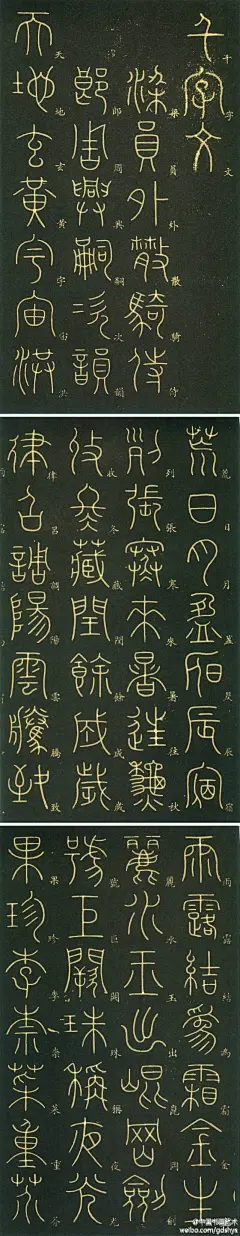 千字文
梁員外散騎侍
郎周興嗣次韻
天地玄黃宇宙洪
荒日月盈昃辰宿
列張寒來暑往秋
收冬藏閏餘成歲
律呂調陽雲騰致
雨露結爲霜金生
麗水玉出崑岡劍
號巨闕珠稱夜光
果珍李柰菜重芥
weibo.com/gdshys